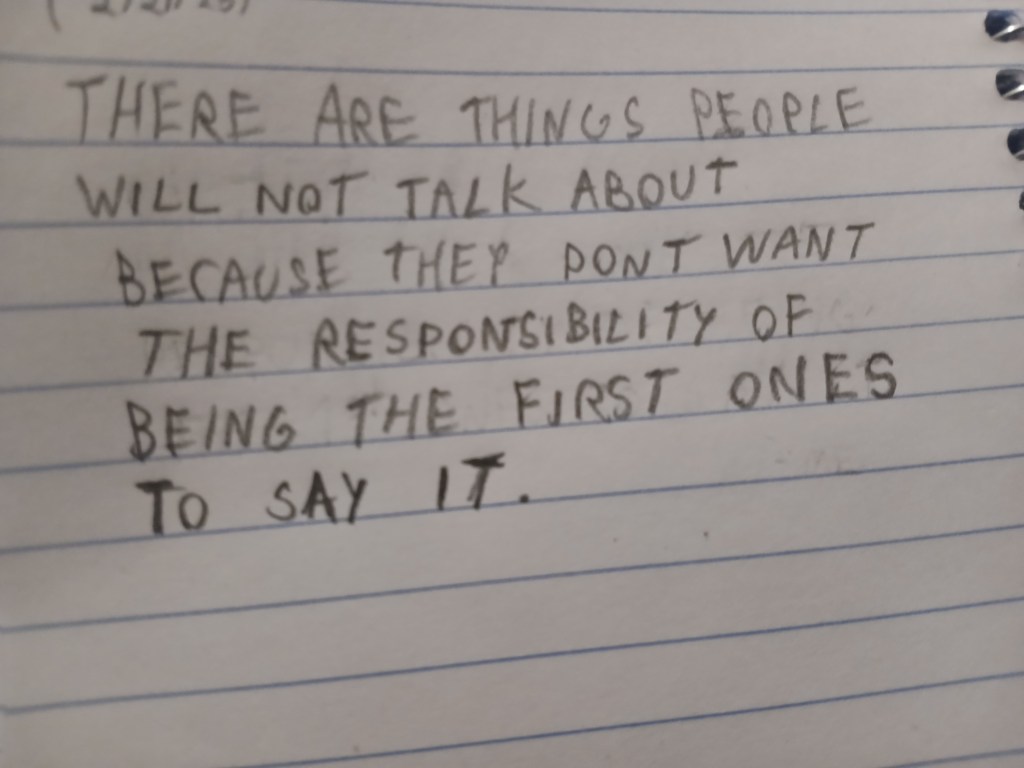 THERE ARE THINGS PEOPLE
WILL NOT TALK ABOUT
BECAUSE THEY DONT WANT
THE RESPONSIBILITY OF
BEING THE FIRST ONES
TO SAY IT.